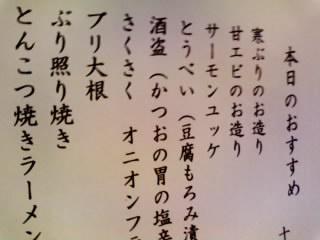 本日のおすすめ
十
寒ぶりのお造り
甘エビのお造り
サーモンユッケ
とうべい（豆腐もろみ漬
酒盗（かつおの胃の塩辛
さくさく　オニオンフラ
ブリ大根
ぶり照り焼き
とんこつ焼きラーメン